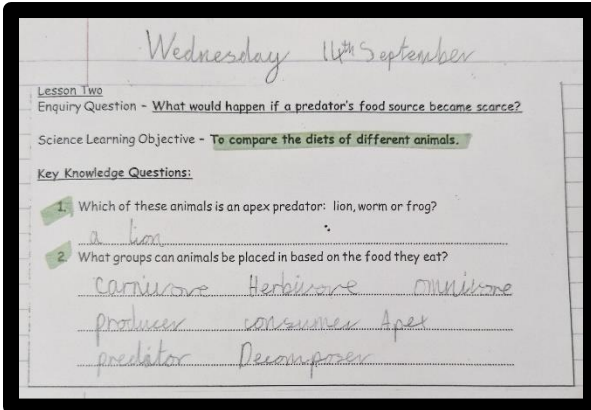 Wednesday 14th September
Lesson Two
Enquiry Question - What would happen if a predator's food source became scarce?
Science Learning Objective - To compare the diets of different animals.
Key Knowledge Questions:
1. Which of these animals is an apex predator: lion, worm or frog?
a lion
2. What groups can animals be placed in based on the food they eat?
Carnivore Herbivore omnivore
producer consumer Apex
predator Decomposer